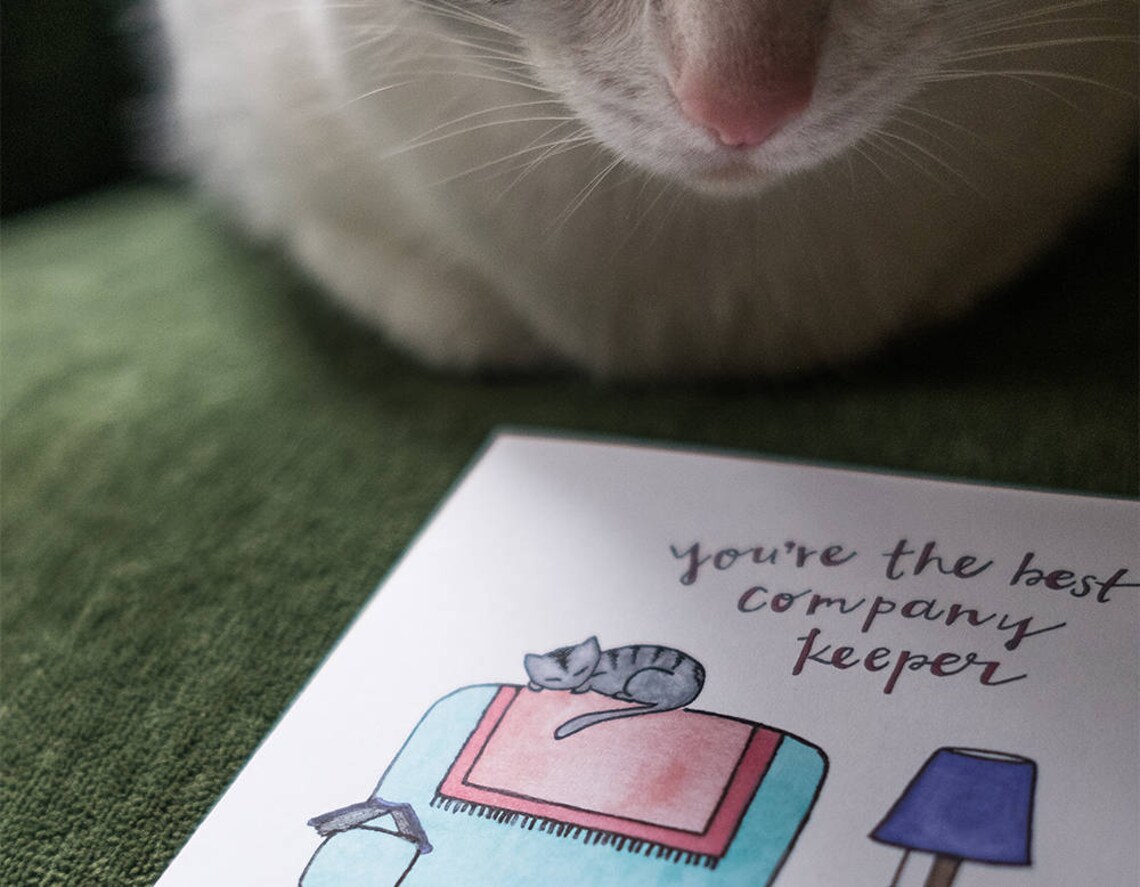 you're the best
company
keeper